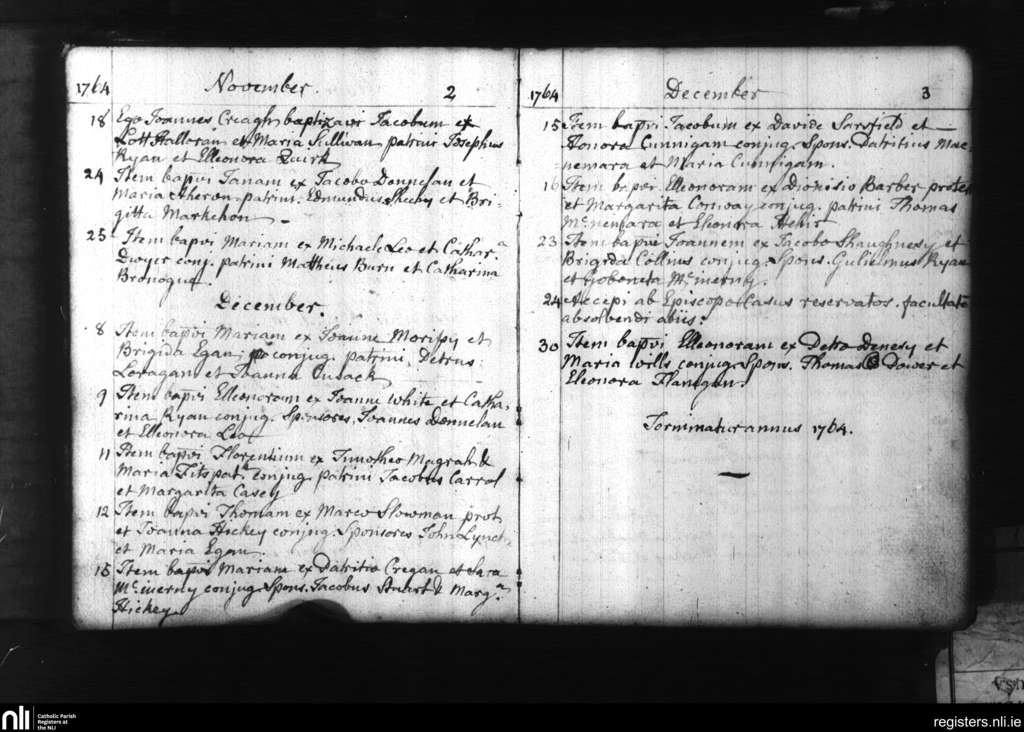 1764 November. 2
18 Ego Joannes Creagh baptizavi Jacobum ex
Lott Halloran et Maria Sullivan patrini Josephus
Ryan et Elleonora Quirk
24 Item bapvi Janam ex Jacobo Donnelan et
Maria Aheron patrini. Edmundus Sheehy et Bri-
gitta Markehon
25 Item bapvi Mariam ex Michaele Leo et Cathar.a
Dwyer conj. patrini Mattheus Burn et Catharina
Bronogue.
December.
8 Item bapvi Mariam ex Joanne Morissy et
Brigida Egan, conjug. patrini, Petrus
Loragan et Joanna Cusack
9 Item bapvi Elleonoram ex Joanne White et Catha-
rina Ryan conjug. Sponsores. Joannes Donnelan
et Elleonora Leo
11 Item bapvi Florentium ex Timotheo Magrath &
Maria Fitspat.k conjug. patrini Jacobus Carrol
et Margarita Casey
12 Item bapvi Thomam ex Marco Slowman prot.
et Joanna Hickey conjug. Sponsores John Lynch
et Maria Egan.
15 Item bapvi Mariam ex Patritio Cregan et Sara
Mc.inerny conjug. Spons. Jacobus Stuart & Marg.a
Hickey
1764 December 3
15 Item bapvi Jacobum ex Davide Sarsfield et
Honora Cunnigam conjug. Spons. Patritius Mac-
nemara et Maria Cunnigam.
16 Item bapvi. Elleonoram ex Dionisio Barber protes
et Margarita Conway conjug. patrini Thomas
Mc.nemara et Eleonora Hehir
23 Item bapvi Joannem ex Jacobo Shaughnesy et
Brigida Collins conjug. Spons. Gulielmus Ryan
et Gobeneta Mc.inerny.
24 Accepi ab Episcopo Casus reservatos. facultate
absolvendi ab iis.
30 Item bapvi Elleonoram ex Petro Denesy et
Maria Wills conjug. Spons. Thomas Dower et
Eleonora Flanigan.
Terminatur annus 1764.
nli Catholic Parish
Registers at
the NLI
registers.nli.ie